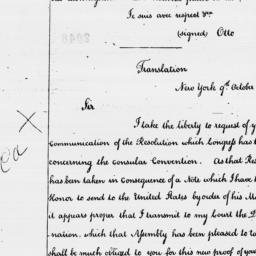 Je suis avec respect &c
(signed) Otto
Translation
New York 9th Octobr
Sir
I take the liberty to request of y
communication of the Resolution which Congress has t
concerning the consular Convention. As that Res
has been taken in consequence of a Note which I have t
Honor to send to the United States by order of his Ma
it appears proper that I transmit to my Court the D
nation, which that Assembly has been pleased to ta
shall be much obliged to you for this new proof of your